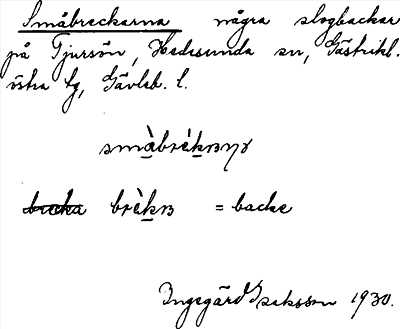 Småbreckarna några slogbackar
på Tjursön, Hedesunda sn, Gästrikl.
östra tg, Gävleb. l.
småbrèkɴηr
brecka brèkɴ = backe
Ingegärd Isaksson 1930.